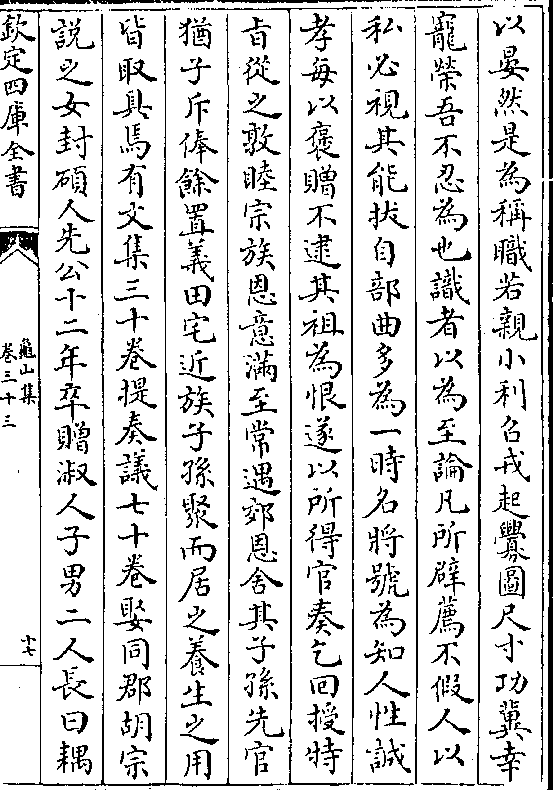 以晏然是為稱職若親小利召戎起釁圖尺寸功冀幸
寵榮吾不忍為也識者以為至論凡所辟薦不假人以
私必視其能拔自部曲多為一時名將號為知人性誠
孝每以褒贈不逮其祖為恨遂以所得官奏乞回授特
旨從之敦睦宗族恩意滿至常遇郊恩舍其子孫先官
猶子斥俸餘置義田宅近族子孫聚而居之養生之用
皆取具焉有文集三十卷提奏議七十卷娶同郡胡宗
説之女封碩人先公十二年卒贈淑人子男二人長曰耦
欽定四庫全書
龜山集
卷三十三
十七